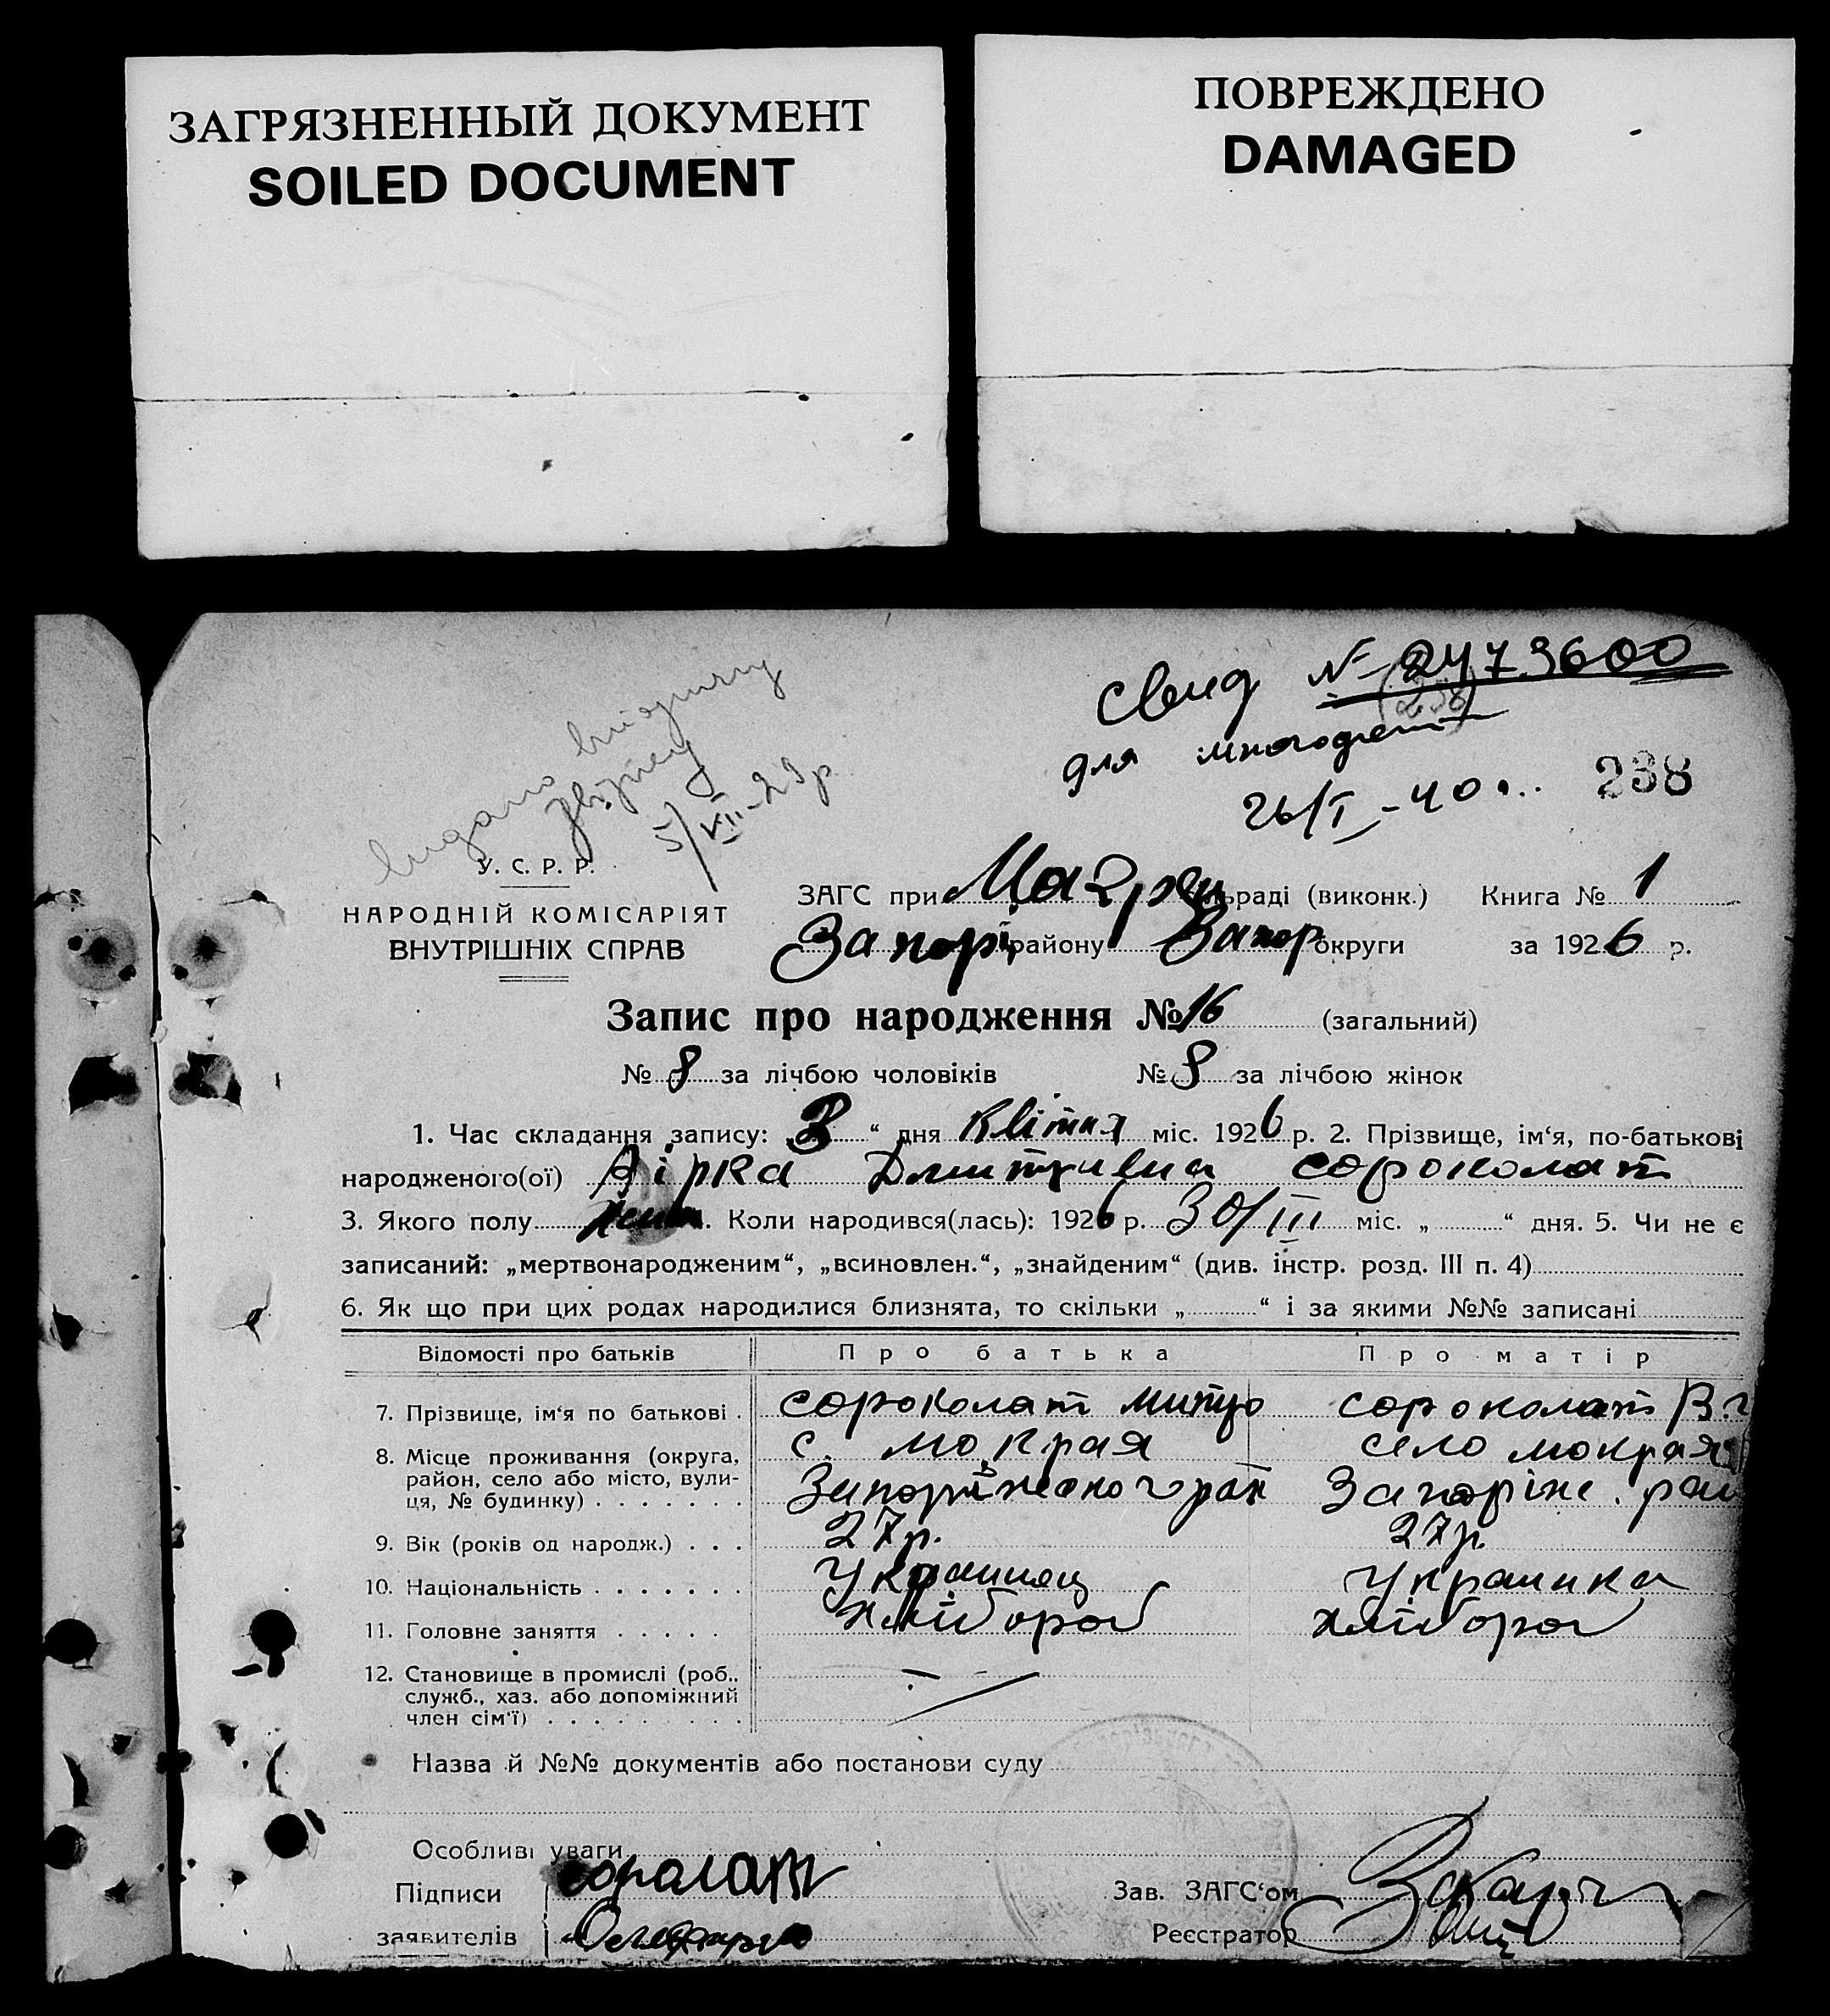 ЗАГРЯЗНЕННЫЙ ДОКУМЕНТ
SOILED DOCUMENT
ПОВРЕЖДЕНО
DAMAGED
Свид № 2473600
(258)
для многодет
26/I - 40
238
видано виписку
5/VII-29р
У. С. Р. Р.
НАРОДНІЙ КОМІСАРІЯТ
ВНУТРІШНІХ СПРАВ
ЗАГС при раді (виконк.) Книга № 1
Запорі району Запор округи за 1926 р.
Запис про народження № 16 (загальний)
№ 8 за лічбою чоловіків № 8 за лічбою жінок
1. Час складання запису: „3“ дня Квітня міс. 1926 р. 2. Прізвище, ім‘я, по-батькові
народженого(ої) Дмитривна сороколат
3. Якого полу жен. Коли народився(лась): 1926 р. 30/III міс. „ “ дня. 5. Чи не є
записаний: „мертвонародженим“, „всиновлен.“, „знайденим“ (див. інстр. розд. III п. 4)
6. Як що при цих родах народилися близнята, то скільки „ “ і за якими №№ записані
Відомості про батьків Про батька Про матір
7. Прізвище, ім‘я по батькові . сороколат митро сороколат В.
8. Місце проживання (округа, с. мокрая село мокрая
район, село або місто, вули-
ця, № будинку) . . . . . . . Запоріжського рай Запоріже. рай
9. Вік (років од народж.) . . . 27р. 27р.
10. Національність . . . . . . . Украинец Украинка
11. Головне заняття . . . . . хлібороб хлібороб
12. Становище в промислі (роб.,
служб., хаз. або допоміжний
член сім‘ї) . . . . . . . . .
Назва й №№ документів або постанови суду
Особливі уваги
Підписи Зав. ЗАГС‘ом
заявителів Реєстратор